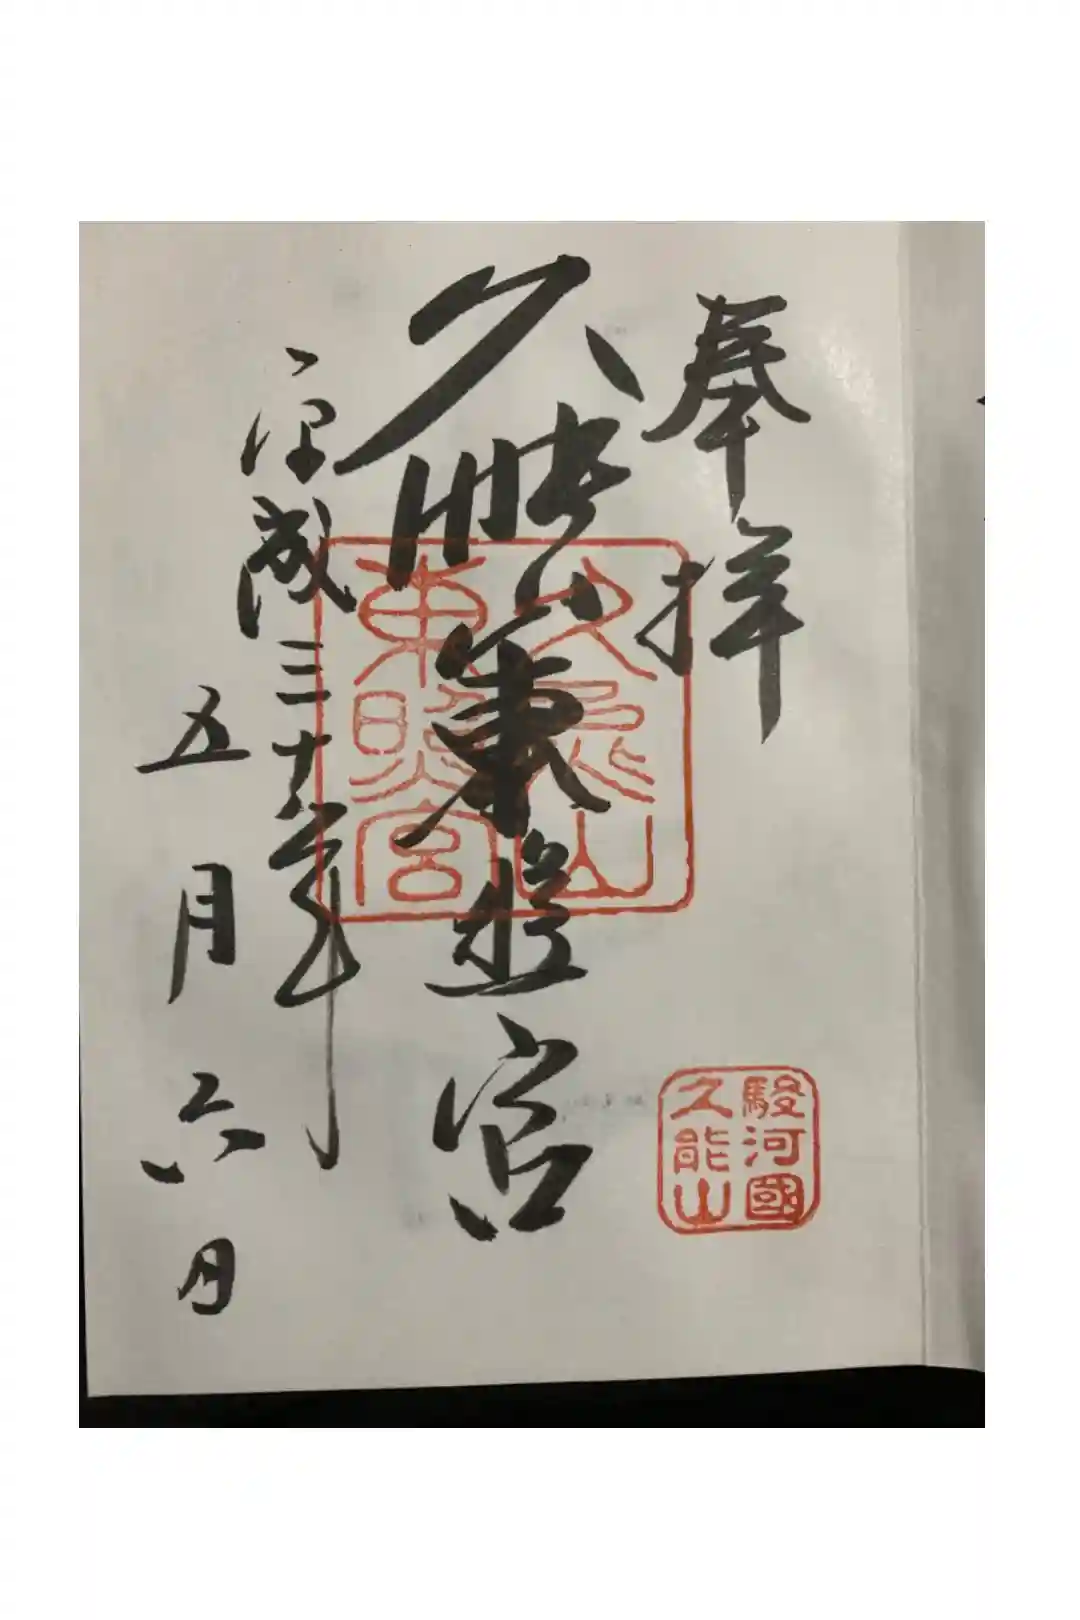 奉拝
駿河國
久能山
久能山東照宮
久能山
東照宮
平成三十年
五月六日